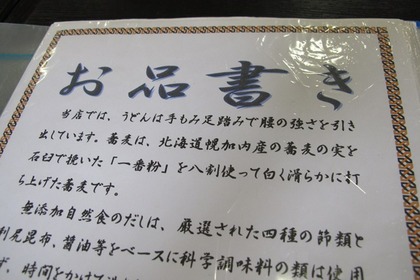 お品書き
当店では、うどんは手もみ足踏みで腰の強さを引き
出しています。蕎麦は、北海道幌加内産の蕎麦の実を
石臼で挽いた「一番粉」を八割使って白く滑らかに打
ち上げた蕎麦です。
無添加自然食のだしは、厳選された四種の節類と
利尻昆布、醤油等をベースに科学調味料の類は使用
ず、時間をかけて